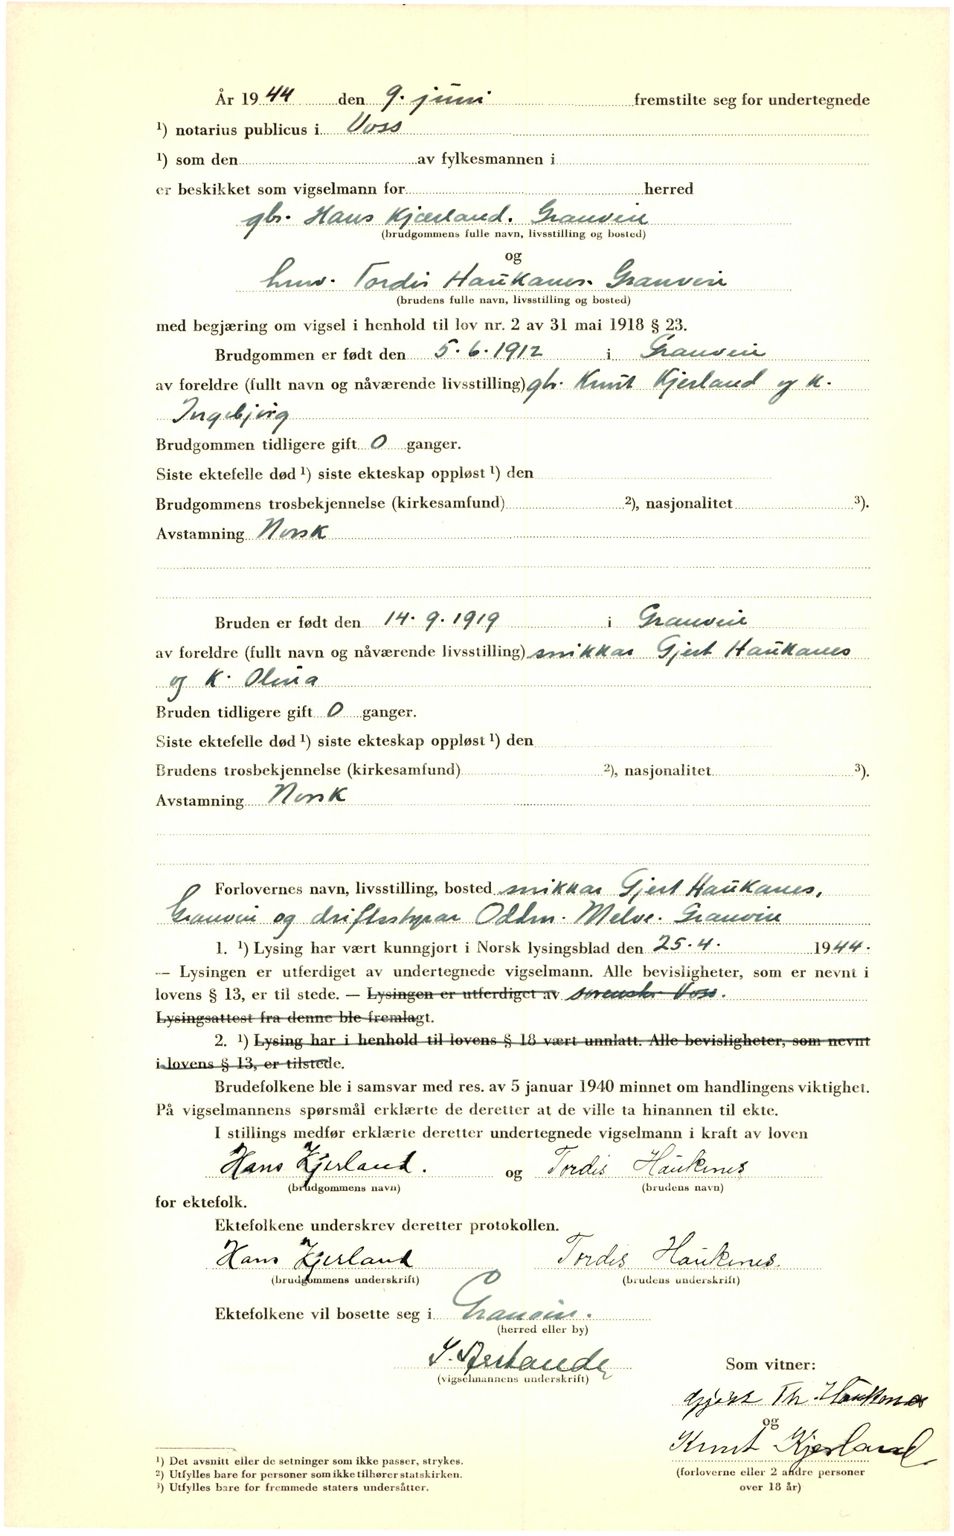 År 1944 den 9. juni fremstilte seg for undertegnede
¹) notarius publicus i Voss
¹) som den av fylkesmannen i
er beskikket som vigselmann for herred
gbr. Hans Kjærland. Granvin
(brudgommens fulle navn, livsstilling og bosted)
og
hmv. Tordis Haukanes. Granvin
(brudens fulle navn, livsstilling og bosted)
med begjæring om vigsel i henhold til lov nr. 2 av 31 mai 1918 § 23.
Brudgommen er født den 5. 6. 1912 i Granvin
av foreldre (fullt navn og nåværende livsstilling) gbr. Knut Kjerland og k.
Ingebjørg
Brudgommen tidligere gift 0 ganger.
Siste ektefelle død ¹) siste ekteskap oppløst ¹) den
Brudgommens trosbekjennelse (kirkesamfund) ²), nasjonalitet ³).
Avstamning Norsk
Bruden er født den 14. 9. 1919 i Granvin
av foreldre (fullt navn og nåværende livsstilling) snikkar Gjert Haukanes
og k. Olina
Bruden tidligere gift 0 ganger.
Siste ektefelle død ¹) siste ekteskap oppløst ¹) den
Brudens trosbekjennelse (kirkesamfund) ²), nasjonalitet ³).
Avstamning Norsk
Forlovernes navn, livsstilling, bosted snikkar Gjert Haukanes,
Granvin og driftsstyrar Oddm. Melve. Granvin
1. ¹) Lysing har vært kunngjort i Norsk lysingsblad den 25. 4. 1944.
— Lysingen er utferdiget av undertegnede vigselmann. Alle bevisligheter, som er nevnt i
lovens § 13, er til stede. — Lysingen er utferdiget av sorenskr. Voss.
Lysingsattest fra denne ble fremlagt.
2. ¹) Lysing har i henhold til lovens § 18 vært unnlatt. Alle bevisligheter, som nevnt
i lovens § 13, er tilstede.
Brudefolkene ble i samsvar med res. av 5 januar 1940 minnet om handlingens viktighet.
På vigselmannens spørsmål erklærte de deretter at de ville ta hinannen til ekte.
I stillings medfør erklærte deretter undertegnede vigselmann i kraft av loven
Hans Kjerland. og Tordis Haukenes
(brudgommens navn) (brudens navn)
for ektefolk.
Ektefolkene underskrev deretter protokollen.
Hans Kjerland Tordis Haukenes.
(brudgommens underskrift) (brudens underskrift)
Ektefolkene vil bosette seg i Granvin.
(herred eller by)
(vigselmannens underskrift)
Som vitner:
Gjert Th. Haukenes
og
Knut Kjerland
(forloverne eller 2 andre personer
over 18 år)
¹) Det avsnitt eller de setninger som ikke passer, strykes.
²) Utfylles bare for personer som ikke tilhører statskirken.
³) Utfylles bare for fremmede staters undersåtter.